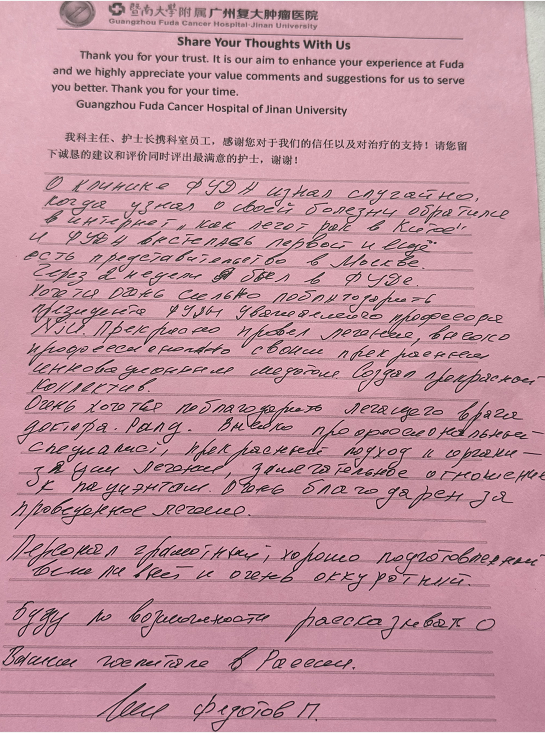 暨南大学附属广州复大肿瘤医院
Guangzhou Fuda Cancer Hospital·Jinan University
Share Your Thoughts With Us
Thank you for your trust. It is our aim to enhance your experience at Fuda
and we highly appreciate your value comments and suggestions for us to serve
you better. Thank you for your time.
Guangzhou Fuda Cancer Hospital of Jinan University
我科主任、护士长携科室员工，感谢您对于我们的信任以及对治疗的支持！请您留
下诚恳的建议和评价同时评出最满意的护士，谢谢！
О клинике ФУДА узнал случайно,
когда узнал о своей болезни обратился
в интернет „как лечат рак в Китае"
и ФУДА первой и ещё
есть представительство в Москве.
Через 2 недели я был в ФУДе.
Хочется очень сильно поблагодарить
президента ФУДЫ уважаемого профессора
Niu. Прекрасно провел лечение, высоко
профессионально своим прекрасным
инновационным методом. Создал прекрасный
коллектив.
Очень хочется поблагодарить лечащего врача
доктора. Высоко профессиональный
специалист, прекрасный подход к органи-
зации лечения, замечательное отношение
к пациэнтам. Очень благодарен за
проведенное лечение.
Персонал грамотный, хорошо подготовленный
и очень оккуратный.
Буду по возможности рассказывать о
Вашем госпитале в России.
Федотов П.